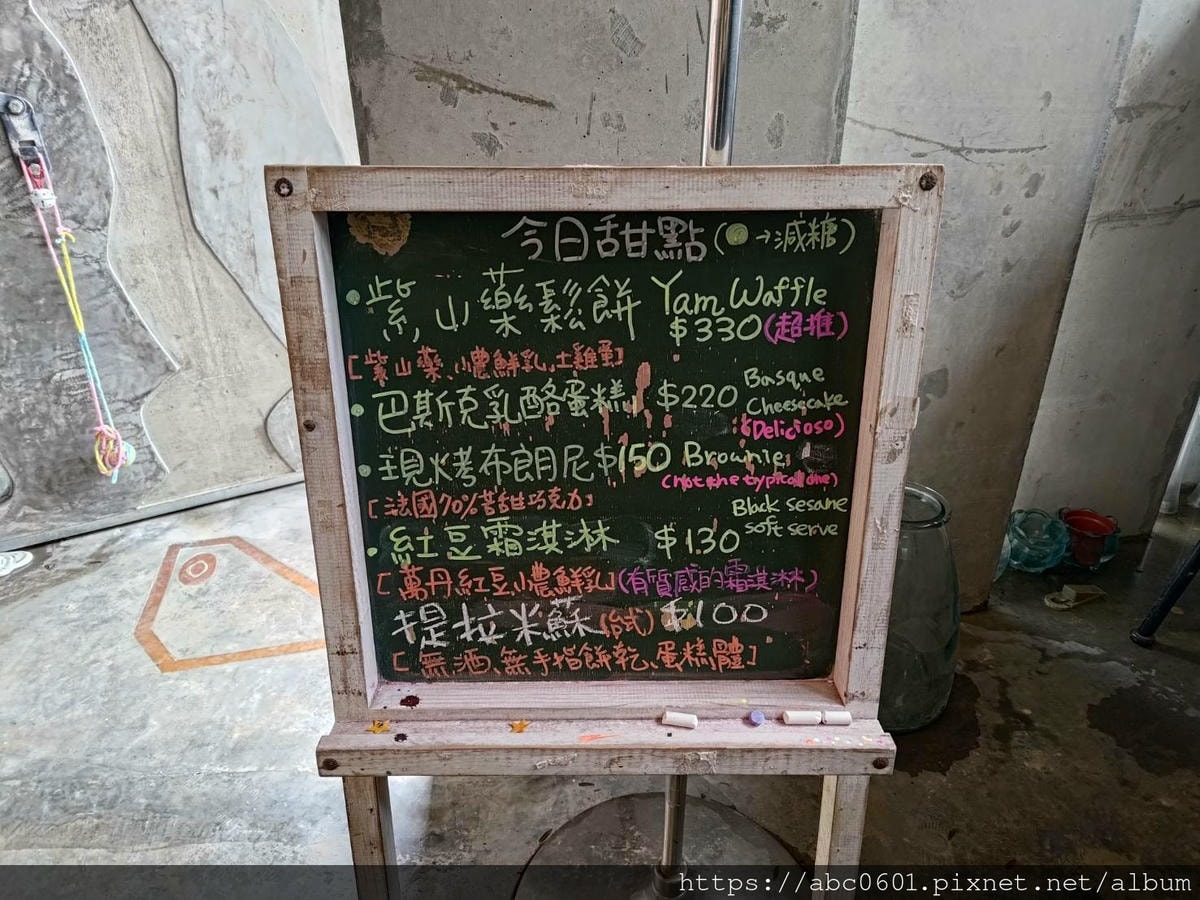 今日甜點(●→減糖)
•紫山藥鬆餅 Yam Waffle
$330(超推)
[紫山藥、小農鮮乳、土雞蛋]
•巴斯克乳酪蛋糕 $220 Basque
Cheesecake
(Delicioso)
•現烤布朗尼$150 Brownie
(not the typical one)
[法國70%苦甜巧克力]
Black sesame
soft serve
•紅豆霜淇淋 $130
[萬丹紅豆、小農鮮乳](有質感的霜淇淋)
提拉米蘇(試) $100
[無酒、無手指餅乾、蛋糕體]
https://abc0601.pixnet.net/album